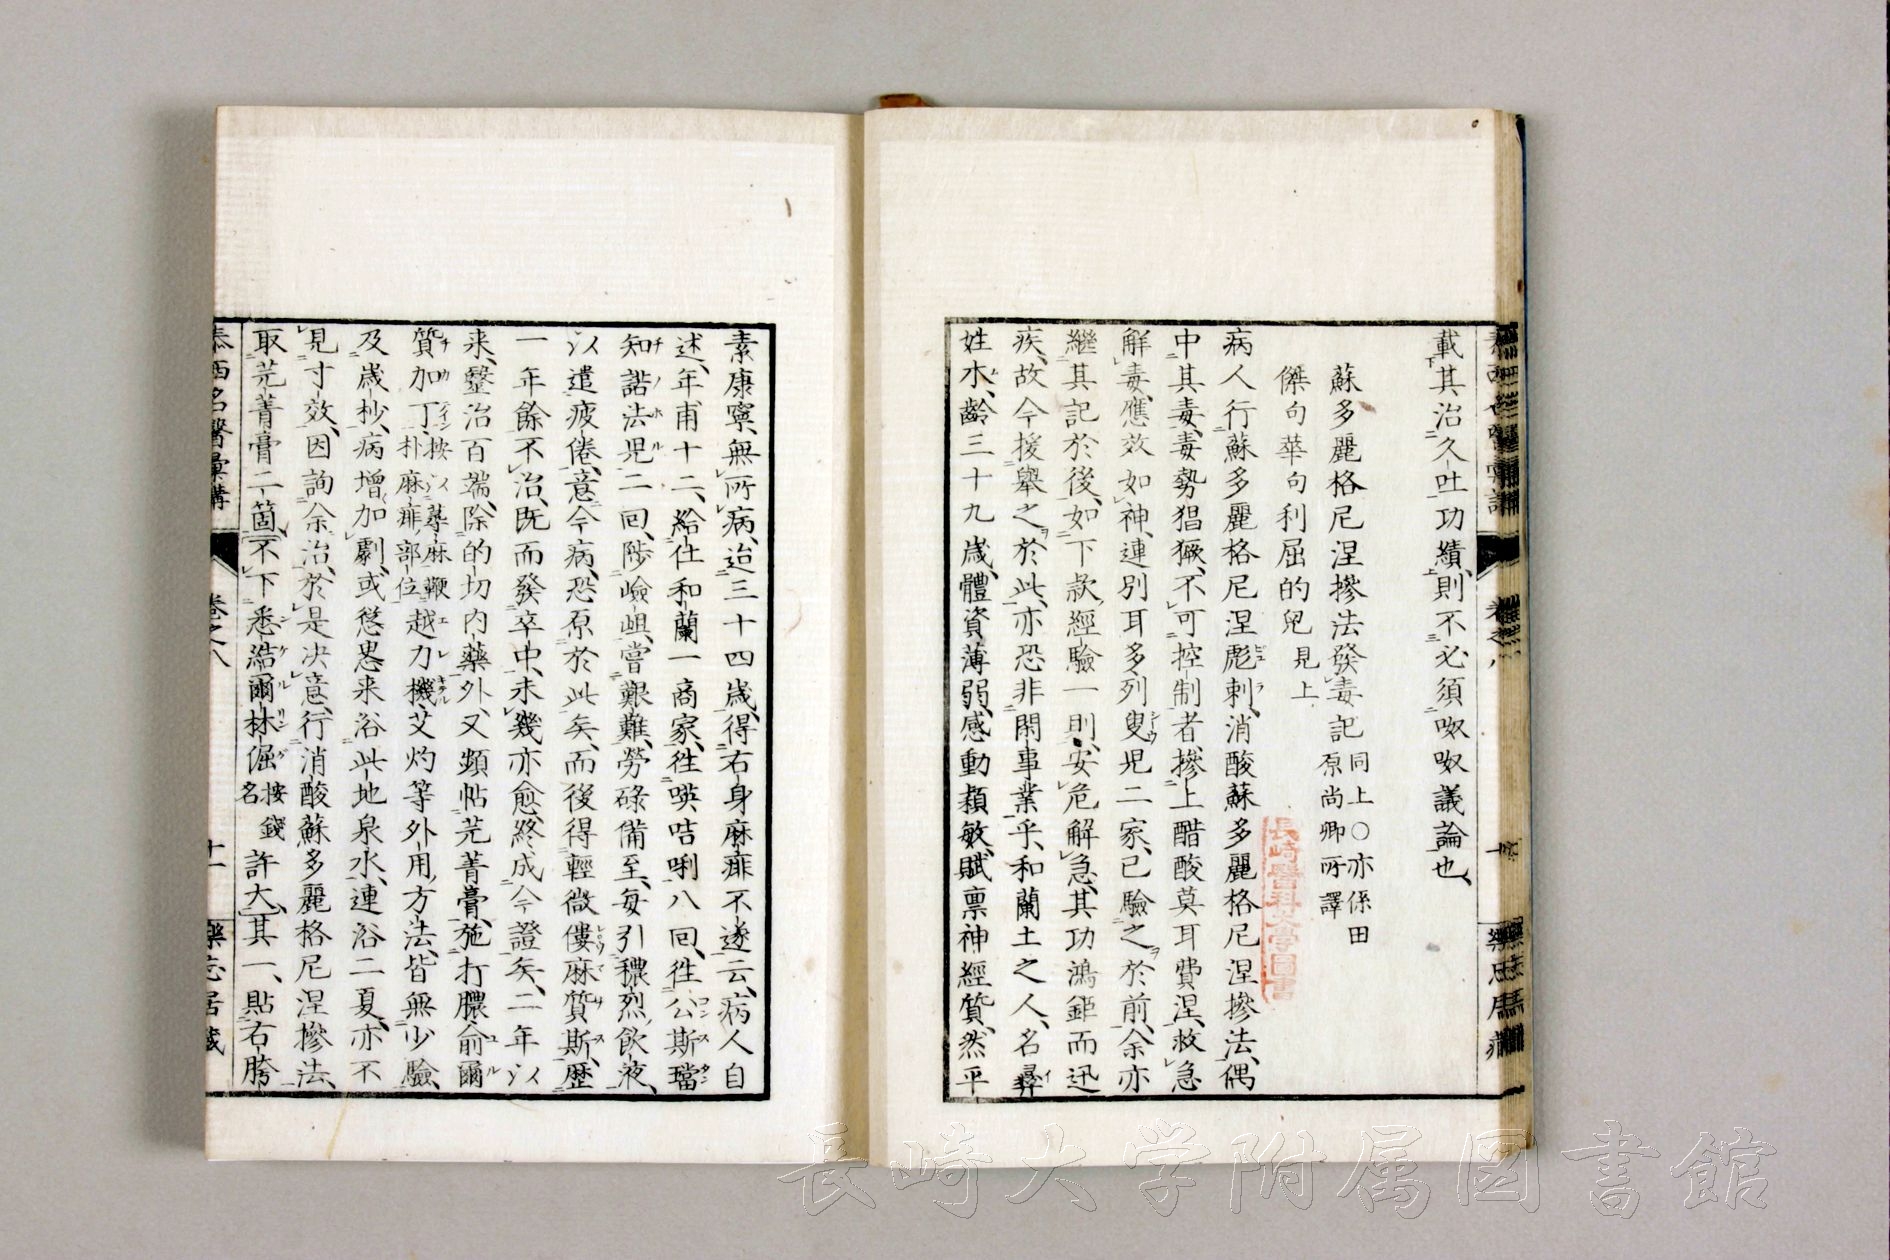 載其治久吐功績則不必須呶呶議論也、
蘇多麗格尼涅摻法發毒記 同上〇亦係田原尚卿所譯
傑句華句利屈的兒 見上
病人行蘇多麗格尼涅彪剌、消酸蘇多麗格尼涅摻法、偶
中其毒、毒勢猖獗、不可控制者、摻上醋酸莫耳費涅、救急
解毒、應效如神、連別耳多列叟児二家、已驗之於前、余亦
繼其記於後、如下款、經驗一則、安危解急、其功鴻鉅而迅
疾、故今援舉之於此、亦恐非閑事業乎、和蘭土之人、名彛
姓水、齡三十九歳、體資薄弱、感動穎敏、賦禀神經質、然平
素康寧、無所病、迨三十四歳、得右身麻痱不遂云、病人自
述、年甫十二、給仕和蘭一商家、往暎咭唎八回、往公斯璫
知諾法児二回、陟嶮岨、嘗艱難、勞碌備至、毎引穠烈飲液、
以遣疲倦、意今病、恐原於此矣、而後得輕微僂麻質斯、歴
一年餘不治、既而發卒中、未幾亦愈、終成今證矣、二年以
来、醫治百端、除的切内藥外、又頻帖芫菁膏、施打膿、俞爾
質加丁 按以蕁麻鞭朴麻痱部位 越力機、艾灼等外用、方法、皆無少驗、
及歳杪、病增加劇、或慫慂来浴此地泉水、連浴二夏、亦不
見寸效、因詢余治、於是决意、行消酸蘇多麗格尼涅摻法、
取芫菁膏二箇、不下悉結爾林倔 按錢名 許大、其一、貼右胯
泰西名醫彙講 卷之八 十一 樂志居藏
長崎醫科大學圖書
長崎大学附属図書館